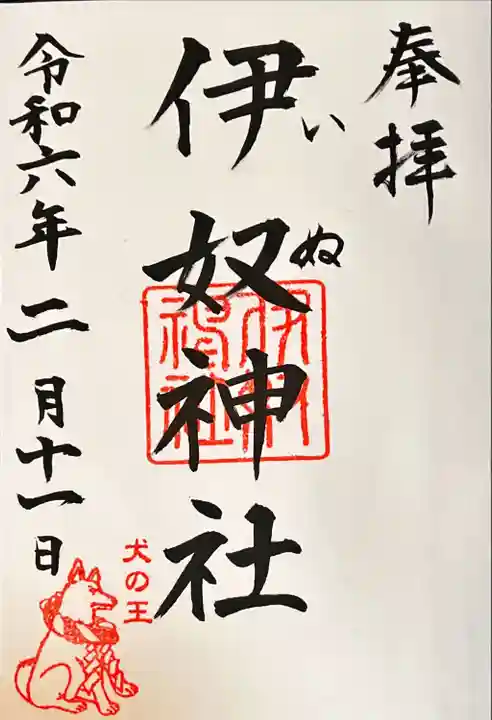 奉拝
伊奴神社
いぬ
伊奴
神社
令和六年二月十一日
犬の王